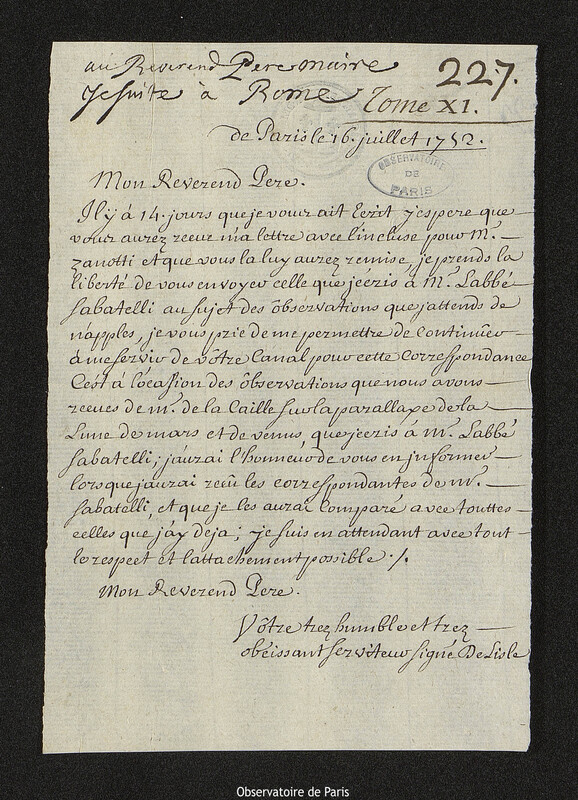 au Reverend Pere maire
Jesuite à Rome
227.
Tome XI.
de Paris le 16. juillet 1752.
OBSERVATOIRE
DE
PARIS
Mon Reverend Pere.
Il y à 14. jours que je vous ait Ecrit j'espere que
vous aurez receu ma lettre avec l'incluse pour Mr.
Zanotti et que vous la luy aurez remise, je prends la
liberté de vous envoyer celle que j'écris à Mr. Labbé
Sabatelli au sujet des ôbservations que j'attends de
napples, je vous prie de me permettre de Continuer
à me servir de vôtre Canal pour cette Correspondance
C'est à l'ocasion des ôbservations que nous avons
receues de mr. de la Caille sur la parallaxe de la
Lune de mars et de venus, que j'ecris à Mr. Labbé
Sabatelli; j'aurai l'honneur de vous en jnformer
lorsque j'aurai reçu les correspondantes de mr.
Sabatelli, et que je les aurai Comparé avec touttes
celles que j'ay deja; je suis en attendant avec tout
le respect et l'attachement possible ./.
Mon Reverend Pere.
Vôtre trez humble et trez
obéissant serviteur signé De Lisle
Observatoire de Paris